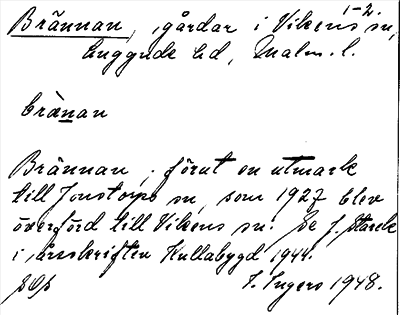 1-2.
Brännan, gårdar i Vikens sn,
Luggude hd, Malm. l.
bränan
Brännan, förut en utmark
till Jonstorps sn, som 1927 blev
överförd till Vikens sn. Se J. Starck
i årsskriften Kullabygd 1944.
I. Ingers 1948.